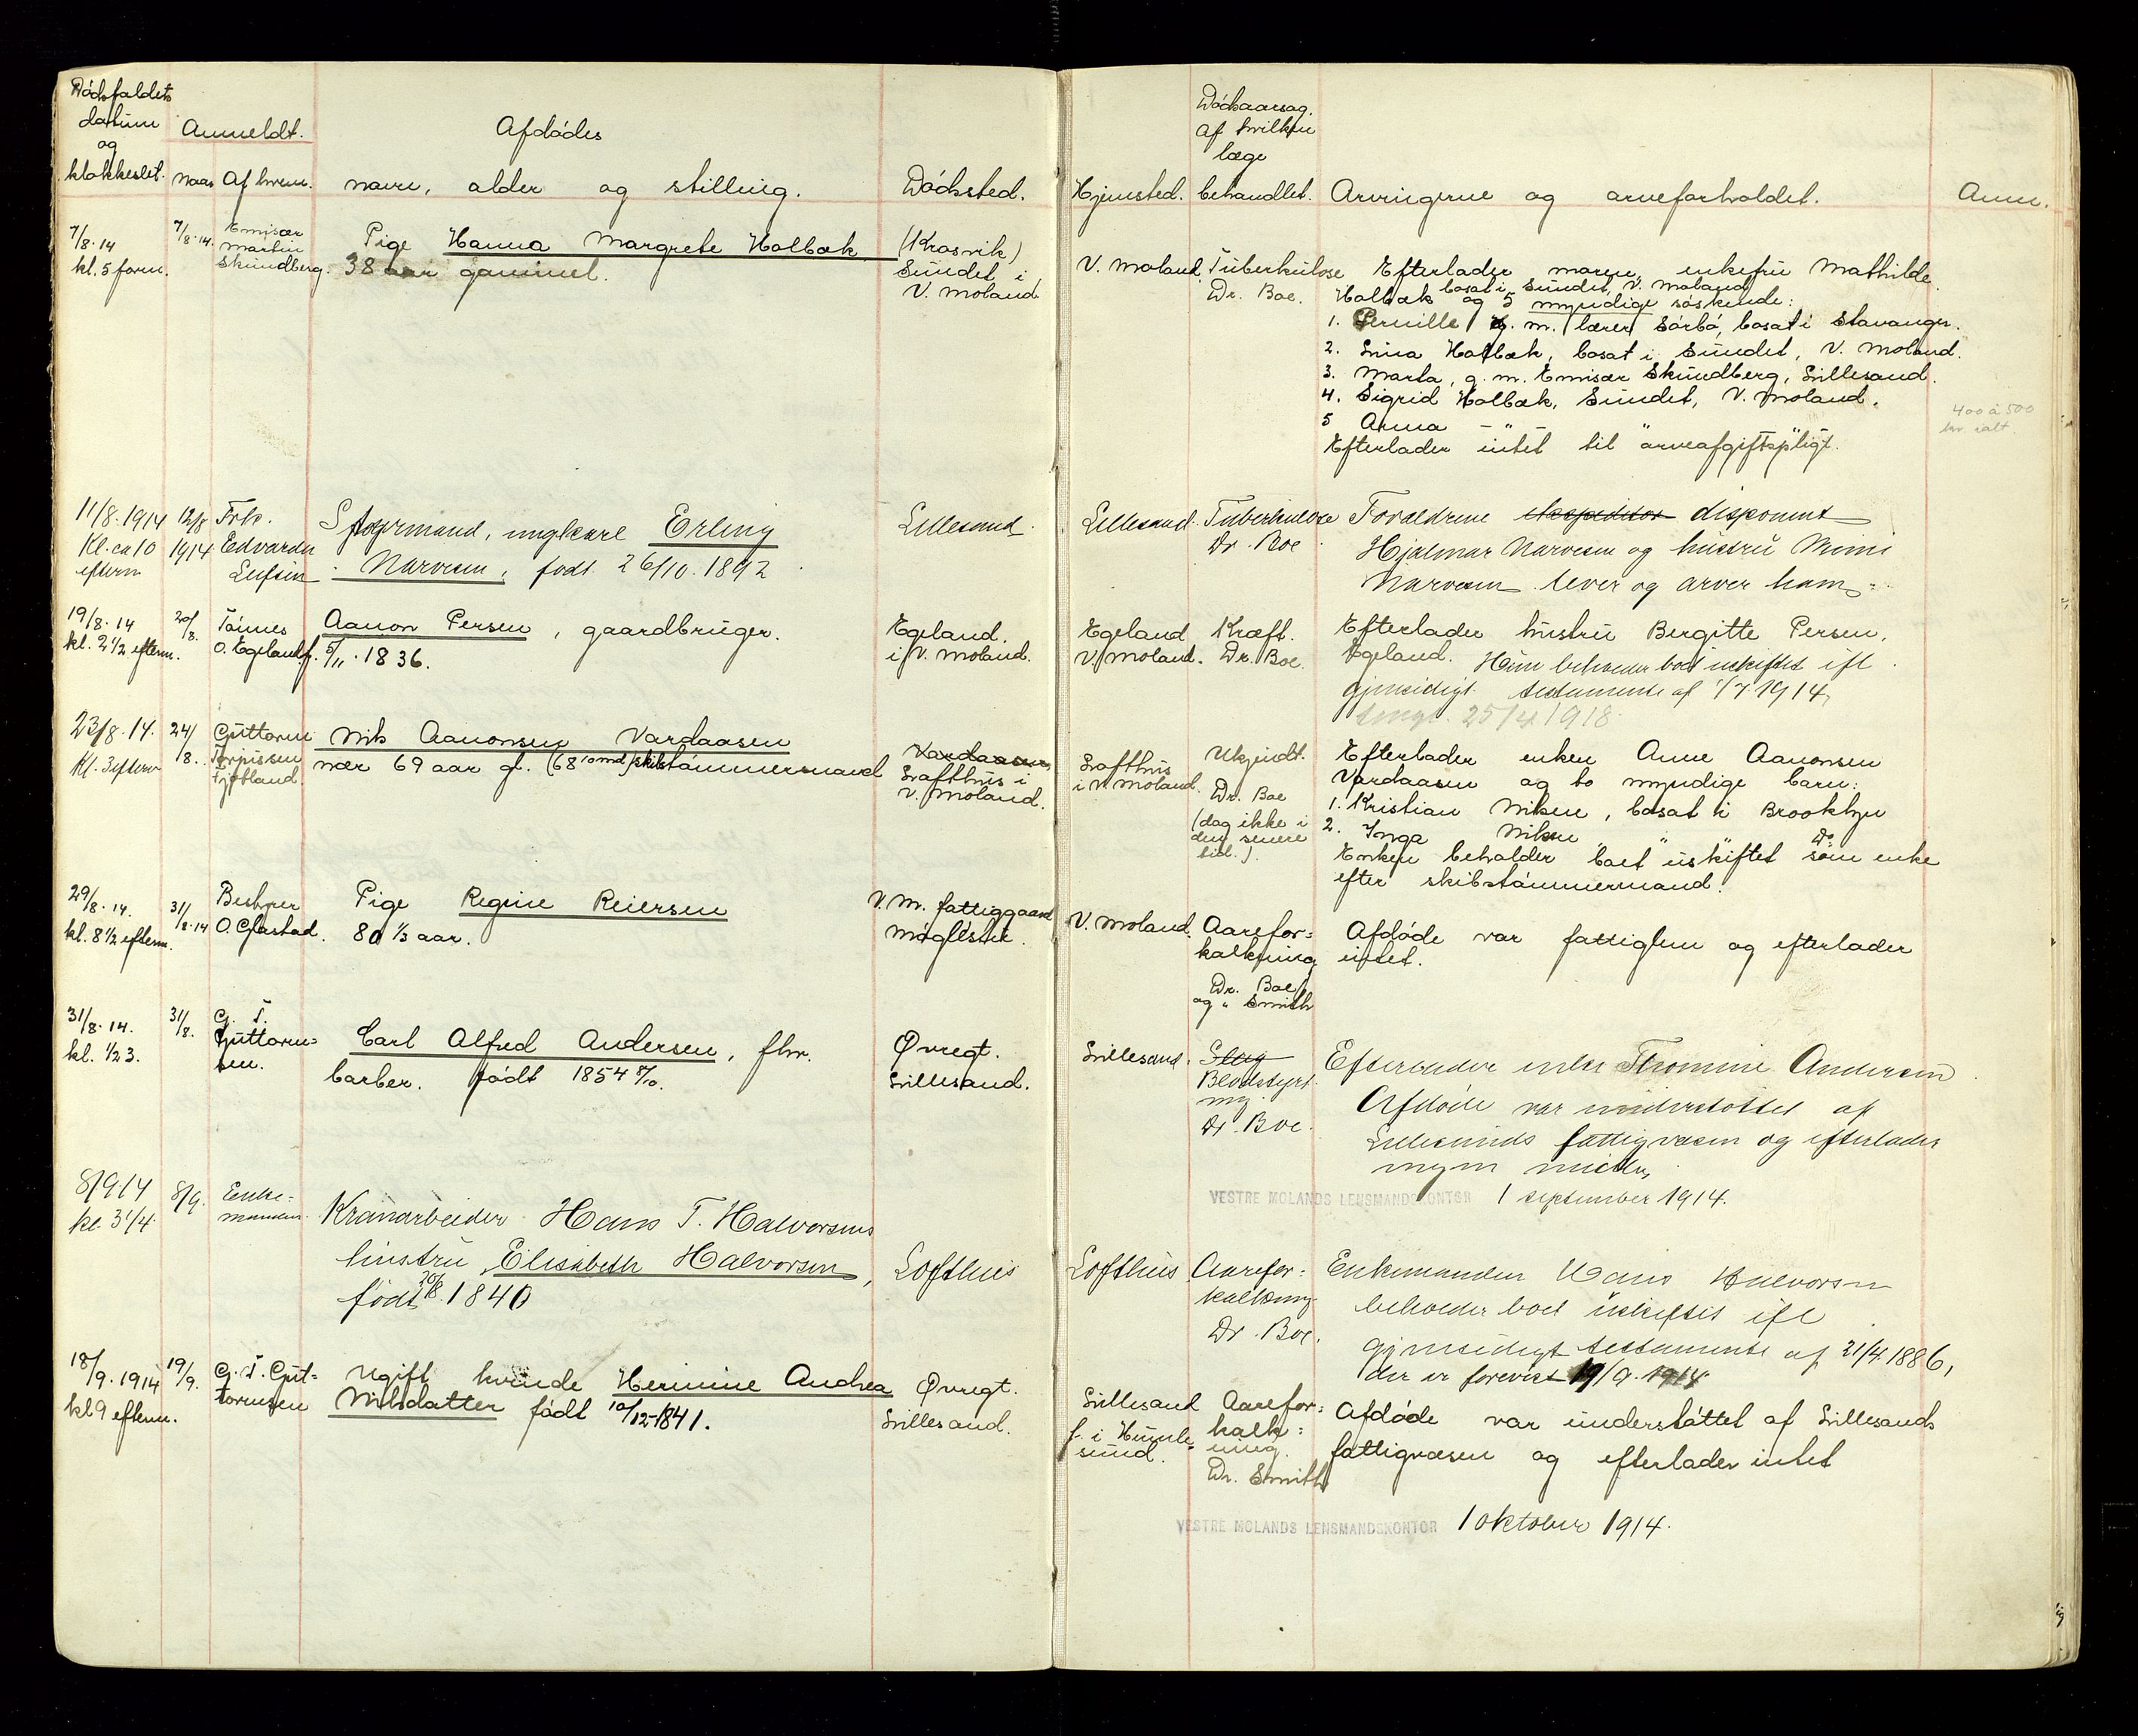 Dödsfaldets
datum
og
klokkeslet.
Anmeldt.
Naar
Af hvem.
Afdödes
navn, alder og stilling.
Dödssted.
Hjemsted.
Dödsaarsag.
af hvilken
læge
behandlet.
Arvingerne og arveforholdet.
Anm.
7/8-14
kl. 5 form.
7/8-14.
Emisær
Martin
Skundberg.
Pige Hanna Margrete Holbæk
38 aar gammel.
(Krosvik)
Sundet i
V. Moland
V. Moland.
Tuberkulose
Dr. Boe.
Efterlader moren, enkefru Mathilde
bosat i Sundet, V. Moland
Holbæk og 5 myndige söskende:
1. Pernille g. m. lærer Sörbö, bosat i Stavanger.
2. Lina Holbæk, bosat i Sundet, V. Moland.
3. Marta, g. m. Emisær Skundberg, Lillesand.
4. Sigrid Holbæk, Sundet, V. Moland.
5 Anna - " - " "
Efterlader intet til arveafgiftspligt.
400 à 500
kr ialt.
11/8-1914
Kl. ca 10
efterm
12/8
1914
Frk.
Edvarda
Styrmand, ungkarl Erling
Narvesen, født 26/10.1892
Lillesand
Lillesand.
Tuberkulose
Dr. Boe
Forældrene ekspeditør disponent
Hjalmar Narvesen og hustru Mimi
Narvesen lever og arver ham.
19/8-14
kl. 2 1/2 efterm.
20/8.
Tönnes
O. Egeland
Aanon Persen, gaardbruger.
f. 5/11.1836.
Egeland.
i V. Moland.
Egeland
V. Moland.
Kræft.
Dr. Boe.
Efterlader hustru Bergitte Persen,
Egeland. Hun beholder boet uskiftet ifl
gjensidigt testamente af 1/7.1914,
tingl. 25/4 1918
23/8-14.
Kl. 3 efterm
24/8.
Guttorm
Torjussen
Tjöbland.
Nils Aanonsen Vardaasen
nær 69 aar gl. (68 10 md) skibstömmermand
Vardaasen
Lofthus i
V. Moland.
Lofthus
i V. Moland.
Ukjendt.
Dr. Boe
(dog ikke i
den senere
tid.)
Efterlader enken Anne Aanonsen
Vardaasen og to myndige barn:
1. Kristian Nilsen, bosat i Brooklyn
2. Inga Nilsen " Do
Enken beholder boet uskiftet som enke
efter skibstömmermand.
29/8-14.
kl. 8 1/2 efterm.
31/8-14
Bestyrer
O. Glastad.
Pige Regine Reiersen
80 1/3 aar.
V. M. fattiggaard
Möglestu.
V. Moland.
Aarefor=
kalkning
Dr. Boe
og " Smith
Afdöde var fattiglem og efterlader
intet.
31/8-14.
kl. 1/2 3.
31/8.
G. T.
Guttorm=
sen.
Carl Alfred Andersen, fhv.
barber. födt 1854 8/10.
Øvregt.
Lillesand.
Lillesand.
Slag
Blodstyrt
ning.
Dr. Boe.
Efterlader enke Thomine Andersen
Afdöde var understöttet af
Lillesands fattigvæsen og efterlader
ingen midler,
VESTRE MOLANDS LENSMANDSKONTOR 1 september 1914.
8/9 14
kl. 3 1/4
8/9.
Enke=
manden
Kranarbeider Hans T. Halvorsens
hustru Elisabeth Halvorsen,
födt 20/8.1840
Lofthus
Lofthus
Aarefor=
kalkning
Dr. Boe.
Enkemanden Hans Halvorsen
beholder boet uskiftet ifl
gjensidigt testamente af 21/4.1886,
der er forevist 19/9.1914.
18/9.1914
kl 9 efterm.
19/9.
G. T. Gut=
tormsen
Ugift kvinde Hermine Andrea
Nilsdatter födt 10/12-1841.
Øvregt.
Lillesand.
Lillesand
f. i Humle
sund.
Aarefor=
kalk=
ning.
Dr. Smith
Afdöde var understöttet af Lillesands
fattigvæsen og efterlader intet
VESTRE MOLANDS LENSMANDSKONTOR 1 oktober 1914.